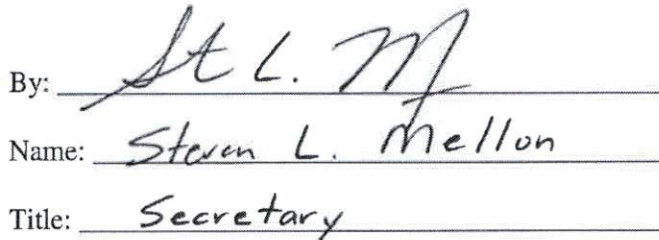 By: St L. M
Name: Steven L. Mellon
Title: Secretary